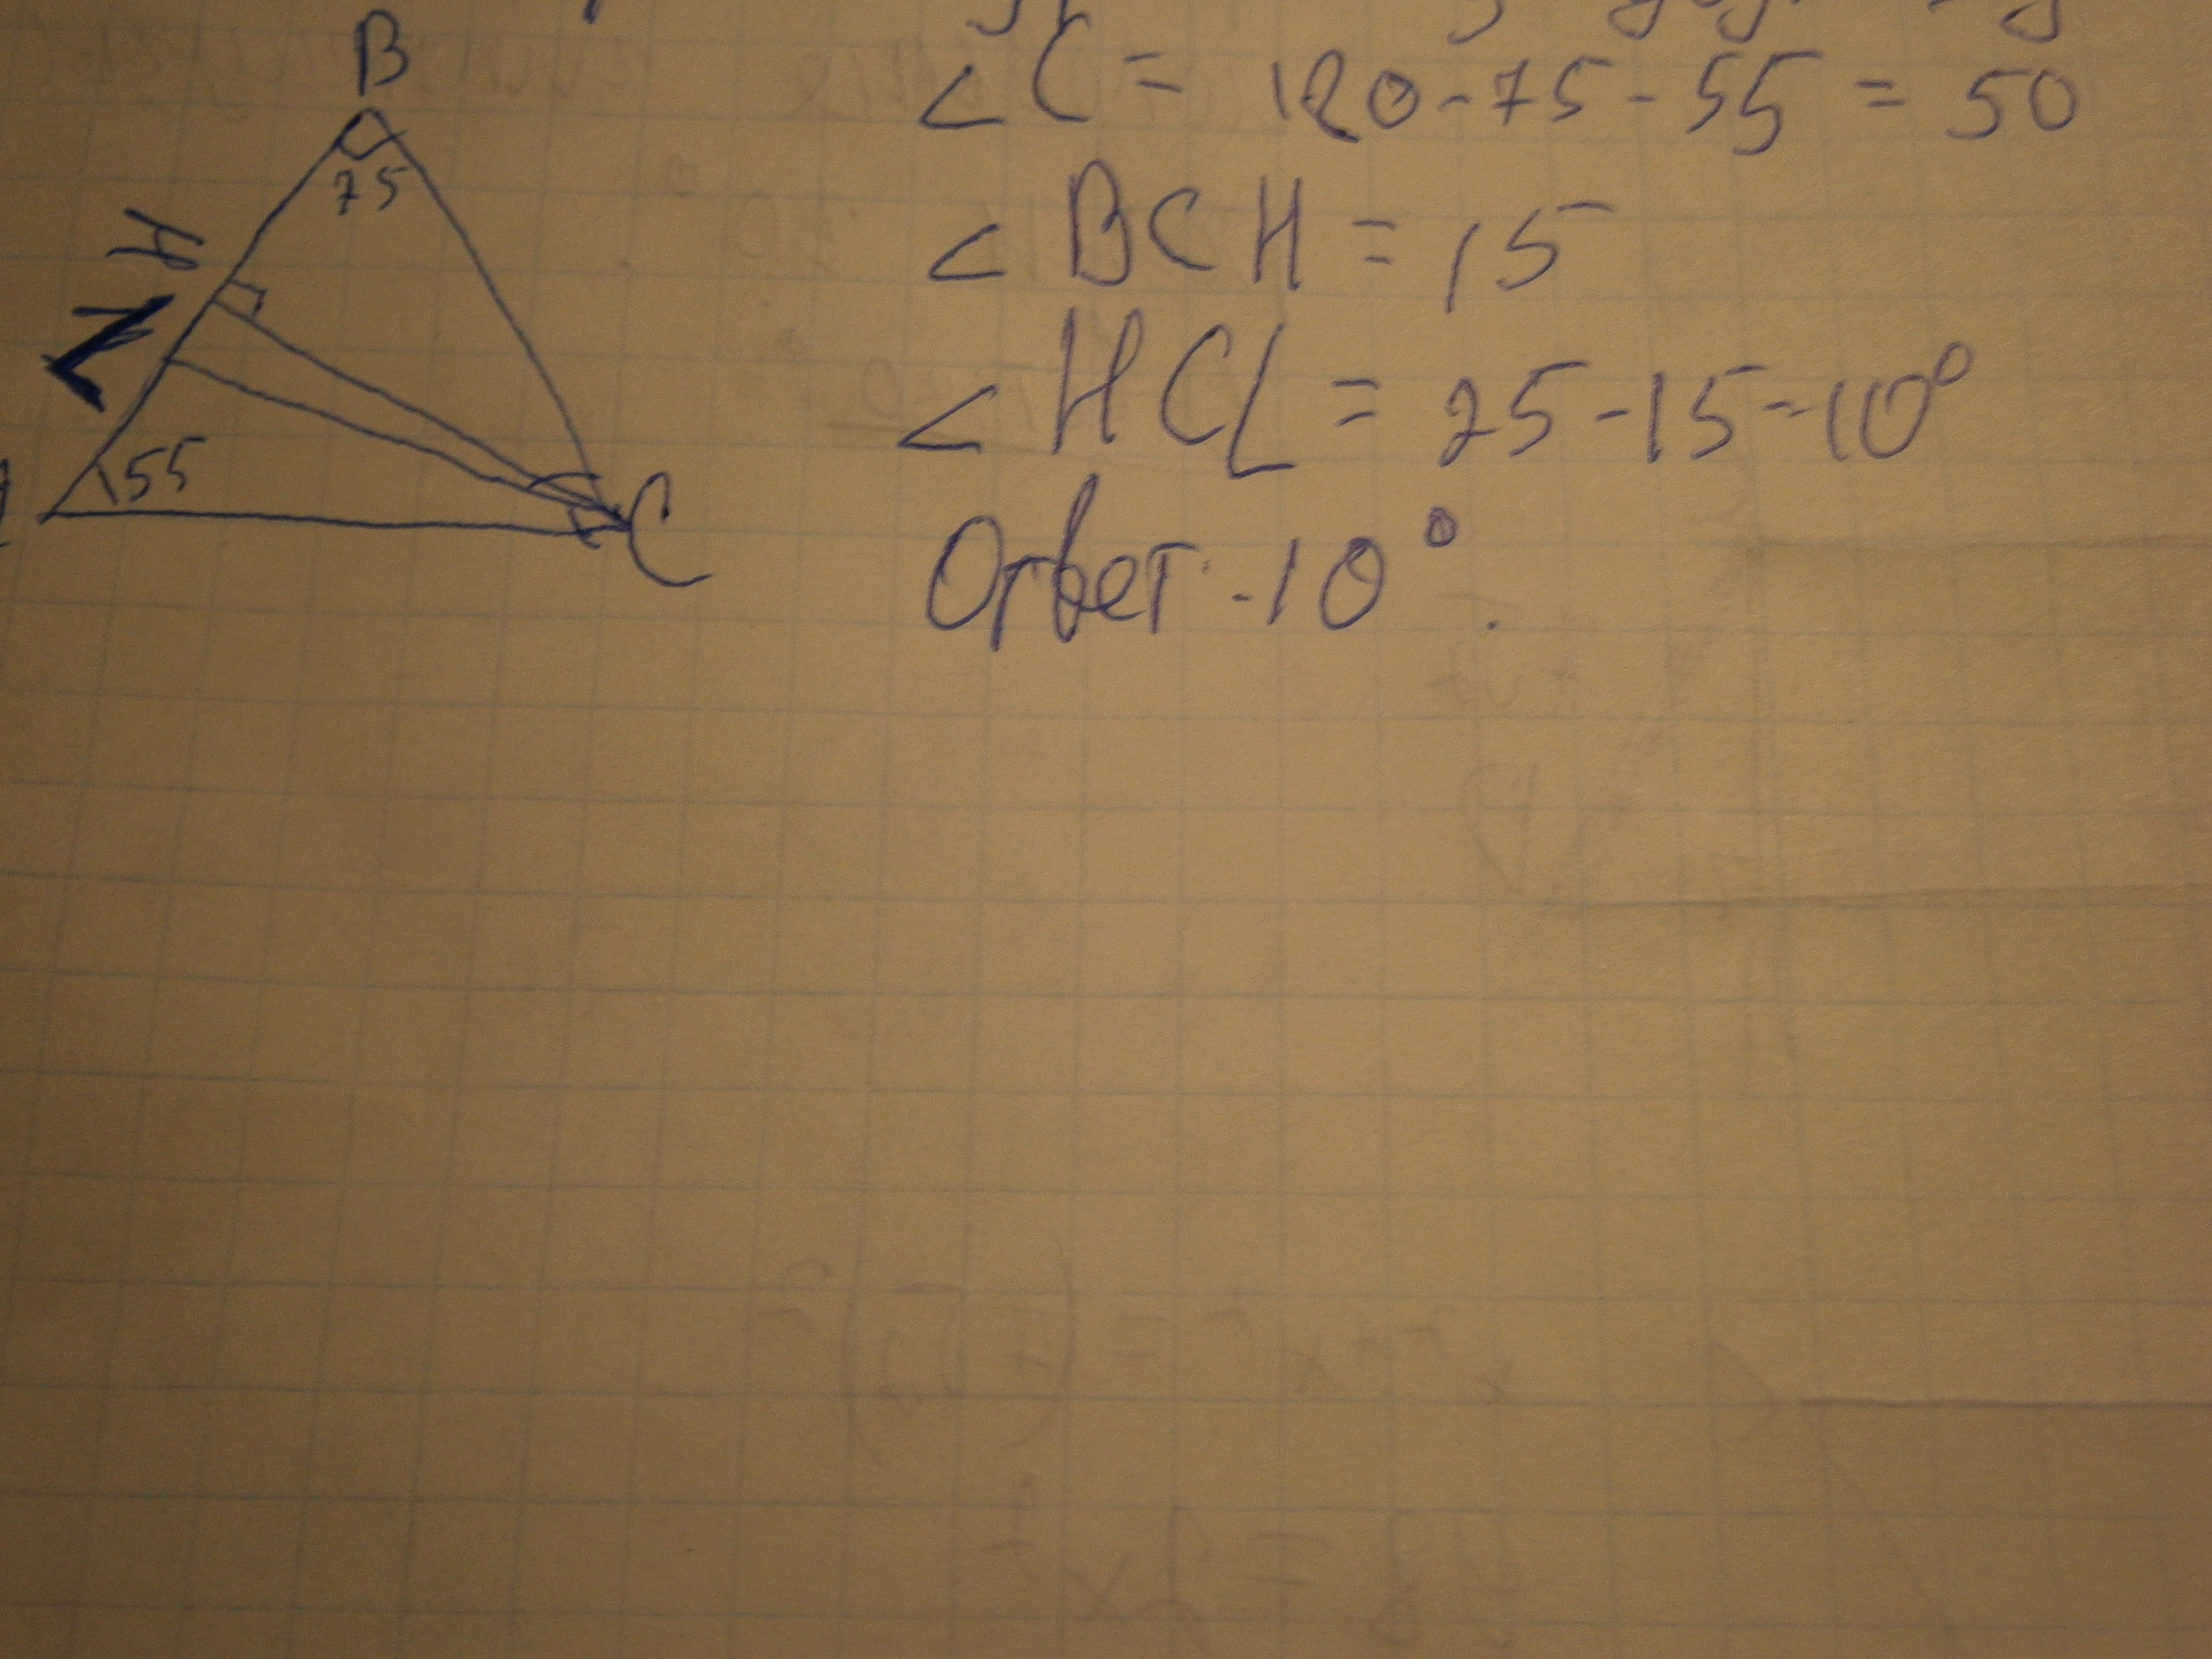 B
75
H
L
55
C
∠C = 180-75-55 = 50
∠BCH = 15
∠HCL = 25-15=10°
Ответ -10°.